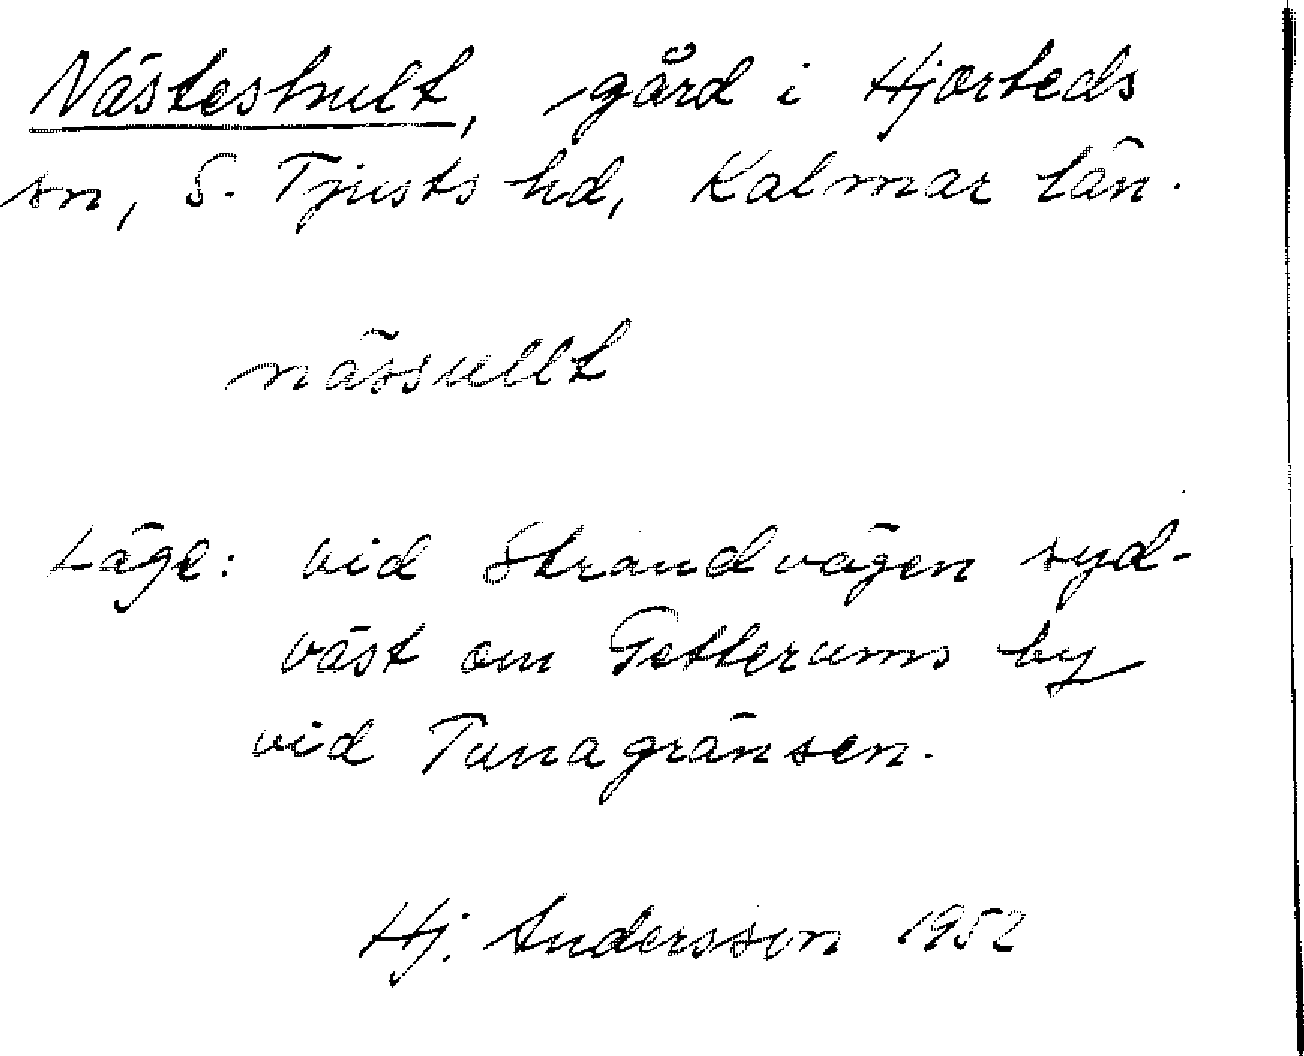 Nästeshult, gård i Hjorteds
sn, S. Tjusts hd, Kalmar län.
nässullt
Läge: vid Strandvägen syd-
väst om Getterums by
vid Tunagränsen.
Hj. Andersson 1952